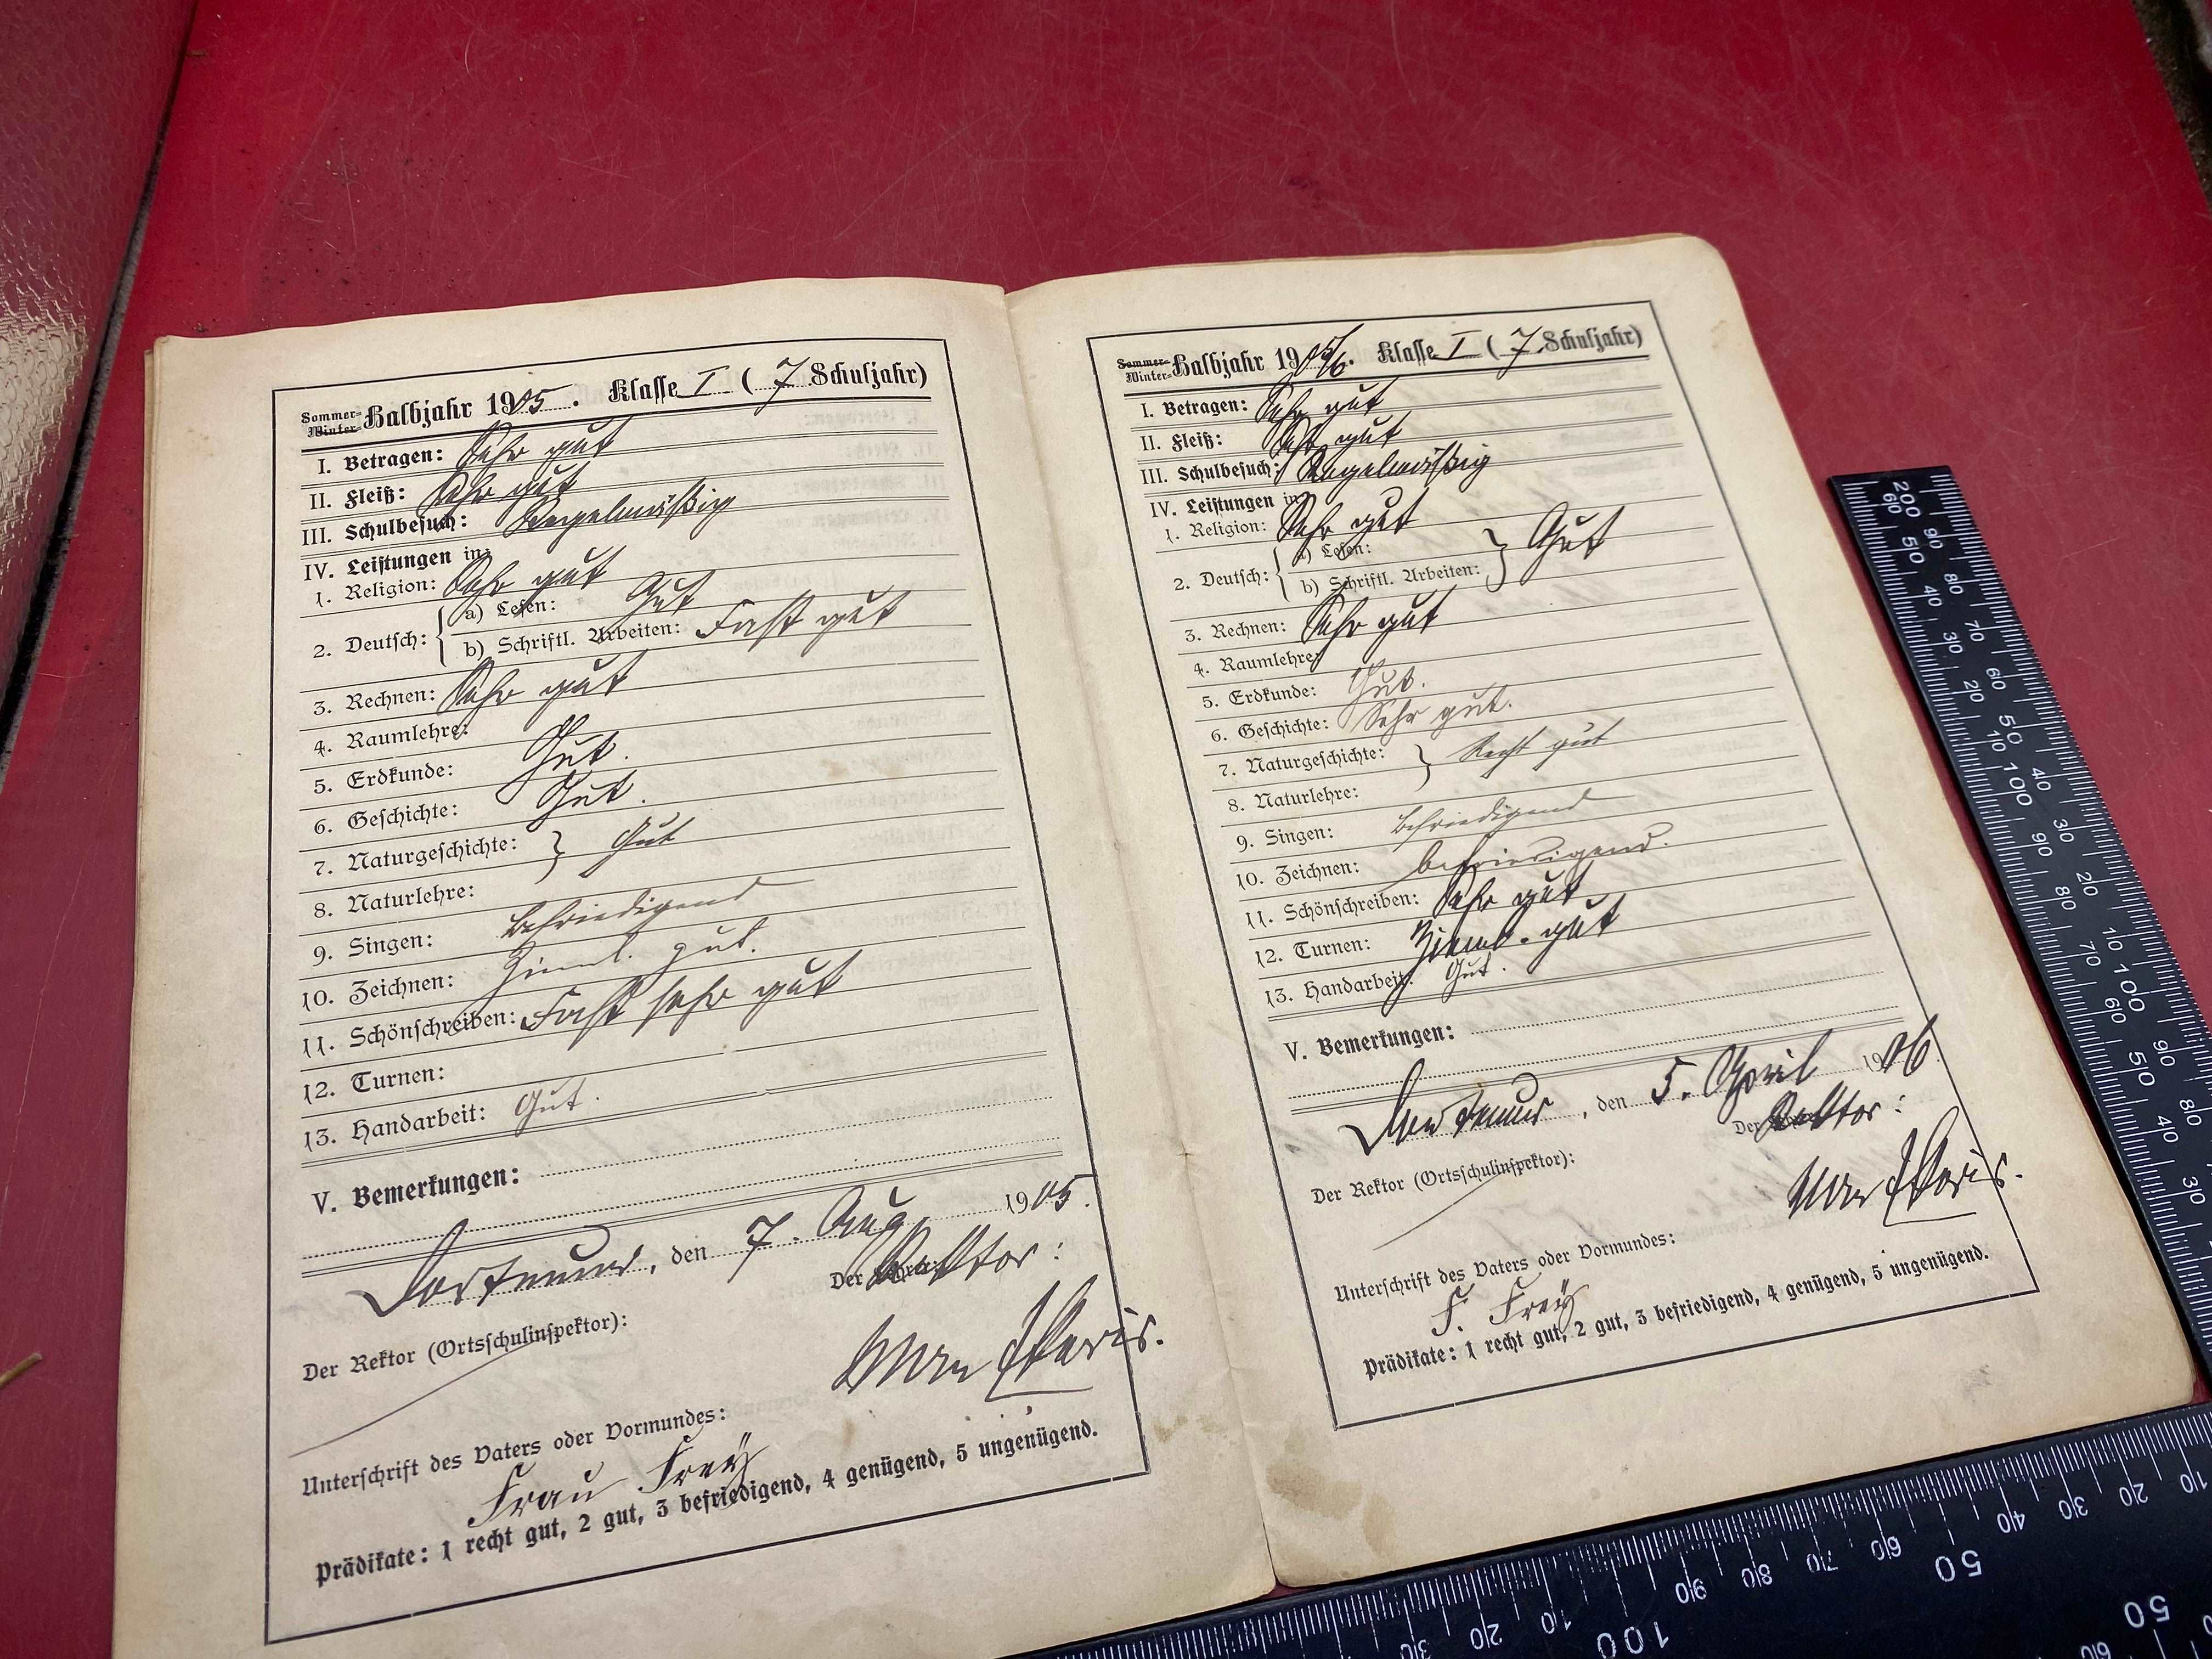 Sommer-
Winter- Halbjahr 1905. Klasse I (7 Schuljahr)
I. Betragen: Sehr gut
II. Fleiß: Sehr gut
III. Schulbesuch: Regelmäßig
IV. Leistungen in:
1. Religion: Sehr gut
2. Deutsch: { a) Lesen: Gut
b) Schriftl. Arbeiten: Fast gut
3. Rechnen: Sehr gut
4. Raumlehre:
5. Erdkunde: Gut.
6. Geschichte: Gut.
7. Naturgeschichte: } Gut
8. Naturlehre:
9. Singen: befriedigend
10. Zeichnen: Ziml. gut.
11. Schönschreiben: Fast sehr gut
12. Turnen:
13. Handarbeit: Gut.
V. Bemerkungen:
Dortmund, den 7. Aug. 1905.
Der Rektor:
Der Rektor (Ortsschulinspektor):
Unterschrift des Vaters oder Vormundes:
Frau Freÿ
Prädikate: 1 recht gut, 2 gut, 3 befriedigend, 4 genügend, 5 ungenügend.
Sommer-
Winter- Halbjahr 1905/6. Klasse I (7. Schuljahr)
I. Betragen: Sehr gut
II. Fleiß: Sehr gut
III. Schulbesuch: Regelmäßig
IV. Leistungen in:
1. Religion: Sehr gut
2. Deutsch: { a) Lesen: } Gut
b) Schriftl. Arbeiten:
3. Rechnen: Sehr gut
4. Raumlehre:
5. Erdkunde: Gut.
6. Geschichte: Sehr gut.
7. Naturgeschichte: } Recht gut
8. Naturlehre:
9. Singen: befriedigend
10. Zeichnen: befriedigend.
11. Schönschreiben: Sehr gut
12. Turnen: Ziml. gut
13. Handarbeit: Gut.
V. Bemerkungen:
Dortmund, den 5. April 1906.
Der Rektor:
Der Rektor (Ortsschulinspektor):
Unterschrift des Vaters oder Vormundes:
F. Freÿ
Prädikate: 1 recht gut, 2 gut, 3 befriedigend, 4 genügend, 5 ungenügend.
200 90 80 70 60 50 40 30 20 10 100 90 80
60 50 40 30 20 10 100 90 80 70 60 50 40 30
30 20 10 100 90 80 70 60 50 40 30 20 10
50